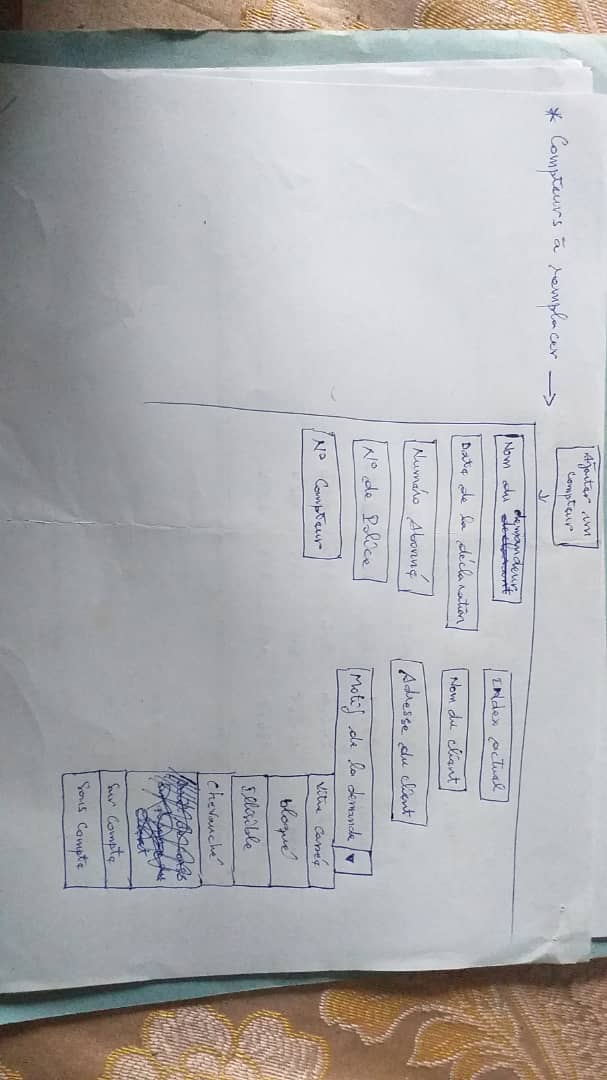 Ajouter un
compteur
* Compteurs à remplacer →
Nom du demandeur
Date de la déclaration
Numéro Abonné
N° de Police
N° Compteur
Index actuel
Nom du client
Adresse du client
Motif de la demande ▼
Vitre cassée
bloqué
Illisible
chevauché
Sur Compte
Sous Compte